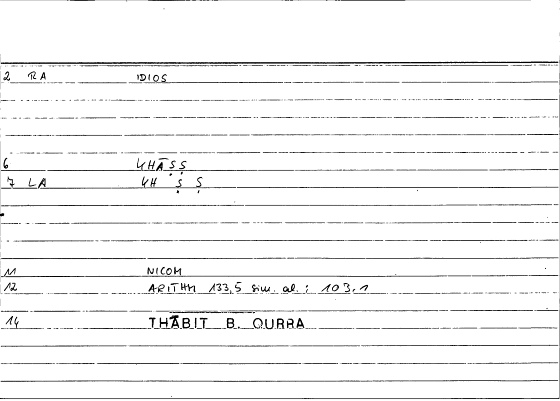 2 RA IDIOS
6 KHĀṢṢ
7 LA KH Ṣ Ṣ
11 NICOM
12 ARITHM 133,5 sim. al. : 103,1
14 THĀBIT B. QURRA